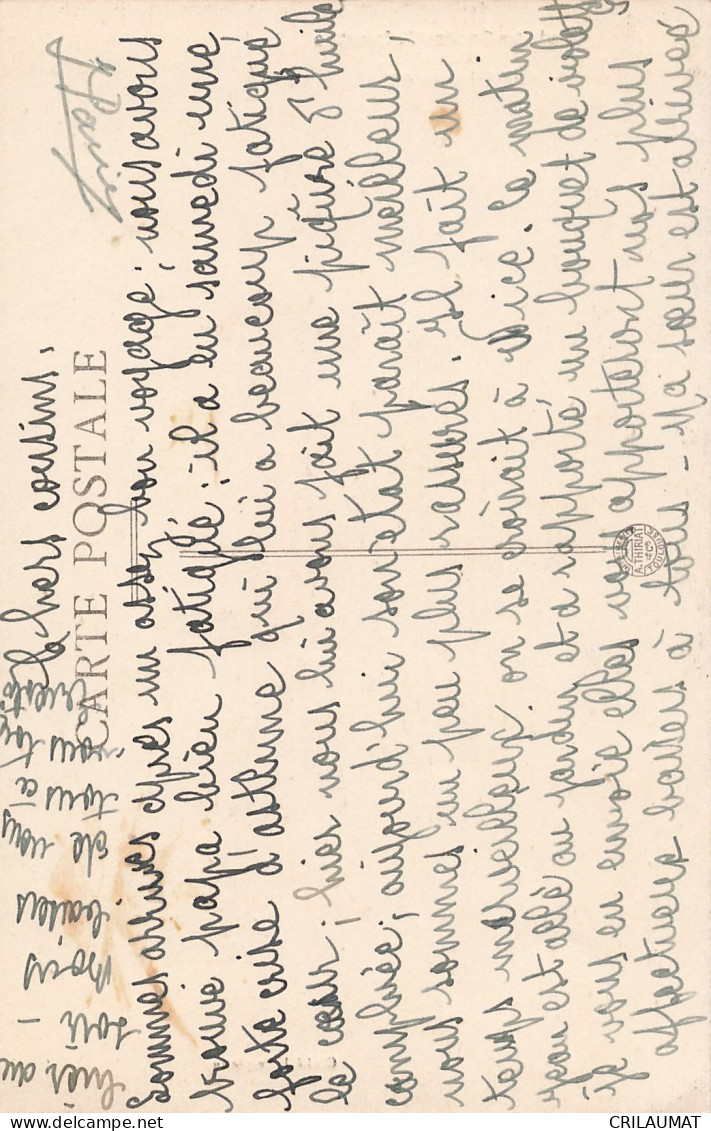 CARTE POSTALE
Chers cousins,
Sommes arrivés après un assez bon voyage ; nous avons
trouvé papa bien fatigué : il a eu samedi une
forte crise d'asthme qui lui a beaucoup fatigué
le cœur ; hier nous lui avons fait une piqûre d'huile
camphrée ; aujourd'hui son état paraît meilleur,
nous sommes un peu plus rassurés. Il fait un
temps merveilleux on se croirait à Nice. Ce matin
Jean est allé au jardin et a rapporté un bouquet de violettes
je vous en envoie elles vous apporteront nos plus
affectueux baisers à tous - Ma sœur est arrivée
hier au
soir -
Bons baisers
de vous
tous
A. THIRIAT
TOULOUSE
CRILAUMAT